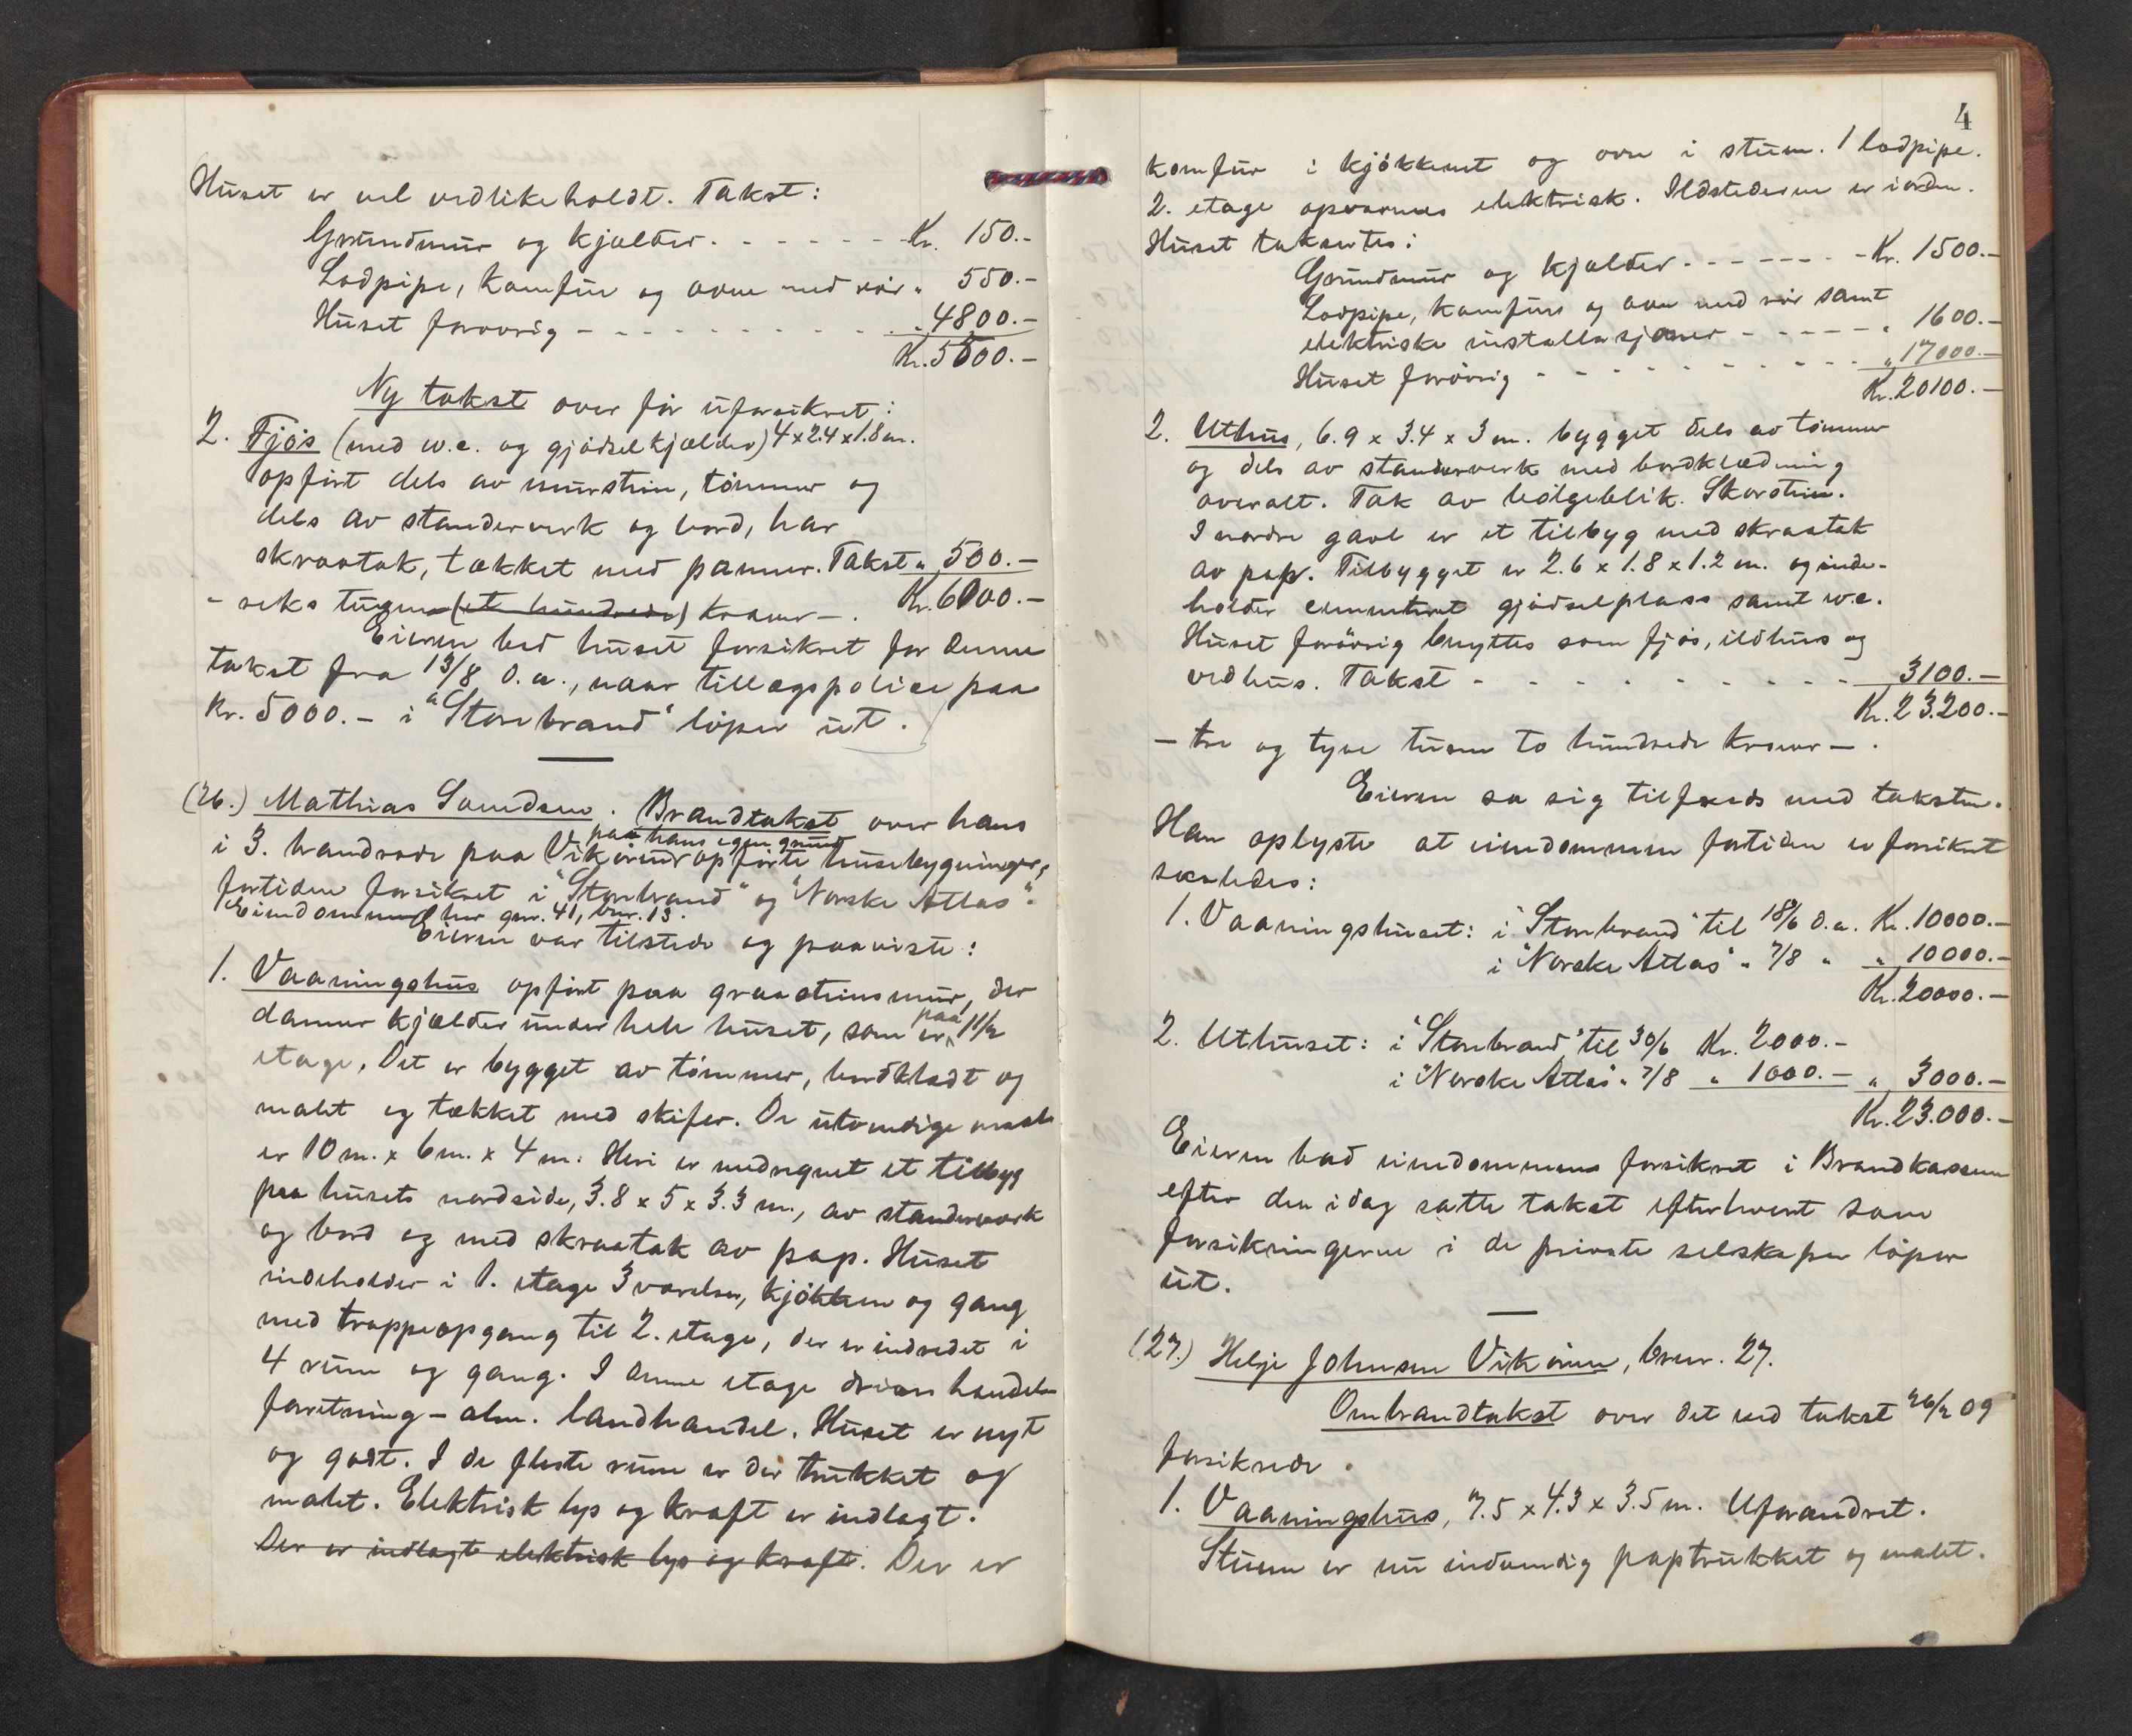 Huset er vel vedlikeholdt. Takst:
Grundmur og kjælder. - - - - - - Kr. 150.-
Lodpipe, komfur og ovne med rör " 550.-
Huset forövrig - - - - - - - - - - " 4800.-
Kr. 5500.-
Ny takst over för uforsikret:
2. Fjös (med w.c. og gjödselkjælder) 4 x 2.4 x 1.8 m.
opfört dels av murstein, tömmer og
dels av stenderverk og bord, har
skraatak, tækket med panner. Takst " 500.-
Kr. 6000.-
- seks tusen (et hundrede) kroner - .
Eieren bad huset forsikret for denne
takst fra 13/8 d.a., naar tillægspolice paa
kr. 5000.- i "Storebrand" löper ut.
(26.) Mathias Svendsen. Brandtakst over hans
paa hans egen grund
i 3. brandrode paa Vikören opförte husebygninger,
fortiden forsikret i "Storebrand" og "Norske Atlas".
Eiendommen har gnr. 41, bnr. 13.
Eieren var tilstede og paaviste:
1. Vaaningshus opfört paa graasteinsmur, der
paa
danner kjælder under hele huset, som er 1 1/2
etage. Det er bygget av tömmer, bordklædt og
malt og tækket med skifer. De utvendige maal
er 10 m. x 6 m. x 4 m. Heri er medregnet et tilbyg
paa husets nordside, 3.8 x 5 x 3.3 m., av stenderverk
og bord og med skraatak av pap. Huset
indeholder i 1. etage 3 værelser, kjökken og gang
med trappeopgang til 2. etage, der er indredet i
4 rum og gang. I denne etage drives handels-
forretning - alm. landhandel. Huset er nyt
og godt. I de fleste rum er der trukket og
malet. Elektrisk lys og kraft er indlagt.
Der er indlagt elektrisk lys og kraft. Der er
4
komfur i kjökkenet og ovn i stuen. 1 lodpipe.
2. etage opvarmes elektrisk. Ildstederne er iorden.
Huset takseres:
Grundmur og kjælder - - - - - - - Kr. 1500.-
Lodpipe, komfur og ovn med rör samt
elektriske installasjoner - - - - - " 1600.-
Huset forövrig - - - - - - - - - - " 17000.-
Kr. 20100.-
2. Uthus, 6.9 x 3.4 x 3 m. bygget dels av tömmer
og dels av stenderverk med bordklædning
overalt. Tak av bölgeblik. Skorstein.
I nordre gavl er et tilbyg med skraatak
av pap. Tilbygget er 2.6 x 1.8 x 1.2 m. og inde-
holder cementeret gjödselplass samt w.c.
Huset forövrig benyttes som fjös, ildhus og
vedhus. Takst - - - - - - - - - - 3100.-
Kr. 23.200.-
- tre og tyve tusen to hundrede kroner - .
Eieren sa sig tilfreds med taksten.
Han oplyste at eiendommen fortiden er forsikret
saaledes:
1. Vaaningshuset: i "Storebrand" til 18/6 d.a. Kr. 10000.-
i "Norske Atlas" " 7/8 " " 10000.-
Kr. 20000.-
2. Uthuset: i "Storebrand" til 30/6 Kr. 2000.-
i "Norske Atlas" " 7/8 " 1000.- " 3000.-
Kr. 23.000.-
Eieren bad eiendommen forsikret i Brandkassen
efter den idag satte takst efterhvert som
forsikringerne i de private selskaper löper
ut.
(27.) Helje Johnsen Vikören, bnr. 27.
Ombrandtakst over det ved takst 26/2 09
forsikrede.
1. Vaaningshus, 7.5 x 4.3 x 3.5 m. Uforandret.
Stuen er nu indvendig paptrukket og malet.